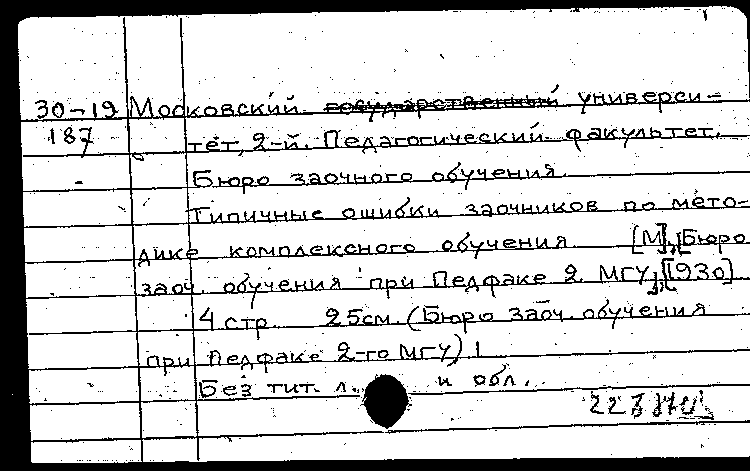 30-19 Московский ~~государственный~~ универси-
187 тет, 2-й. Педагогический факультет.
Бюро заочного обучения.
Типичные ошибки заочников по мето-
дике комплексного обучения [М], [Бюро
заоч. обучения при Педфаке 2 МГУ], [1930]
4 стр. 25см. (Бюро заоч. обучения
при Педфаке 2-го МГУ) 1
Без тит. л. и обл.